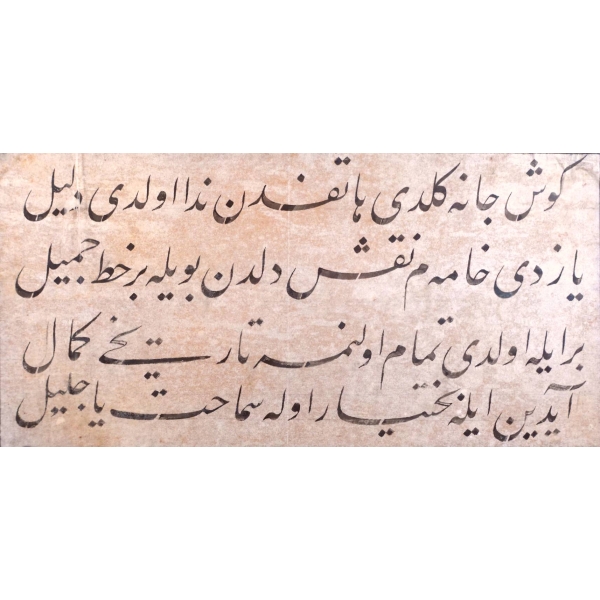 كوش جانه كلدی هاتفدن ندا اولدی دلیل
یازدی خامه م نقش دلدن بویله بر خط جمیل
بر ایله اولدی تمام اولنمه تاریخی كمال
آیدین ایله بختیار اوله سماحت یا جلیل